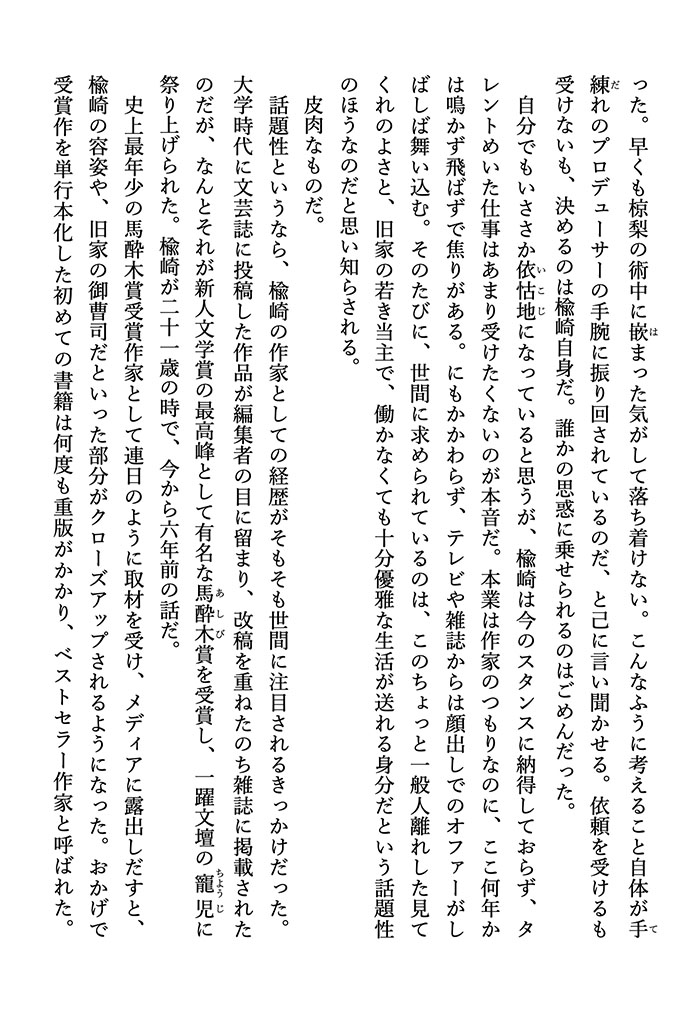 った。早くも椋梨の術中に嵌まった気がして落ち着けない。こんなふうに考えること自体が手
練れのプロデューサーの手腕に振り回されているのだ、と己に言い聞かせる。依頼を受けるも
受けないも、決めるのは楡崎自身だ。誰かの思惑に乗せられるのはごめんだった。
　自分でもいささか依怙地になっていると思うが、楡崎は今のスタンスに納得しておらず、タ
レントめいた仕事はあまり受けたくないのが本音だ。本業は作家のつもりなのに、ここ何年か
は鳴かず飛ばずで焦りがある。にもかかわらず、テレビや雑誌からは顔出しでのオファーがし
ばしば舞い込む。そのたびに、世間に求められているのは、このちょっと一般人離れした見て
くれのよさと、旧家の若き当主で、働かなくても十分優雅な生活が送れる身分だという話題性
のほうなのだと思い知らされる。
　皮肉なものだ。
　話題性というなら、楡崎の作家としての経歴がそもそも世間に注目されるきっかけだった。
大学時代に文芸誌に投稿した作品が編集者の目に留まり、改稿を重ねたのち雑誌に掲載された
のだが、なんとそれが新人文学賞の最高峰として有名な馬酔木賞を受賞し、一躍文壇の寵児に
祭り上げられた。楡崎が二十一歳の時で、今から六年前の話だ。
　史上最年少の馬酔木賞受賞作家として連日のように取材を受け、メディアに露出しだすと、
楡崎の容姿や、旧家の御曹司だといった部分がクローズアップされるようになった。おかげで
受賞作を単行本化した初めての書籍は何度も重版がかかり、ベストセラー作家と呼ばれた。